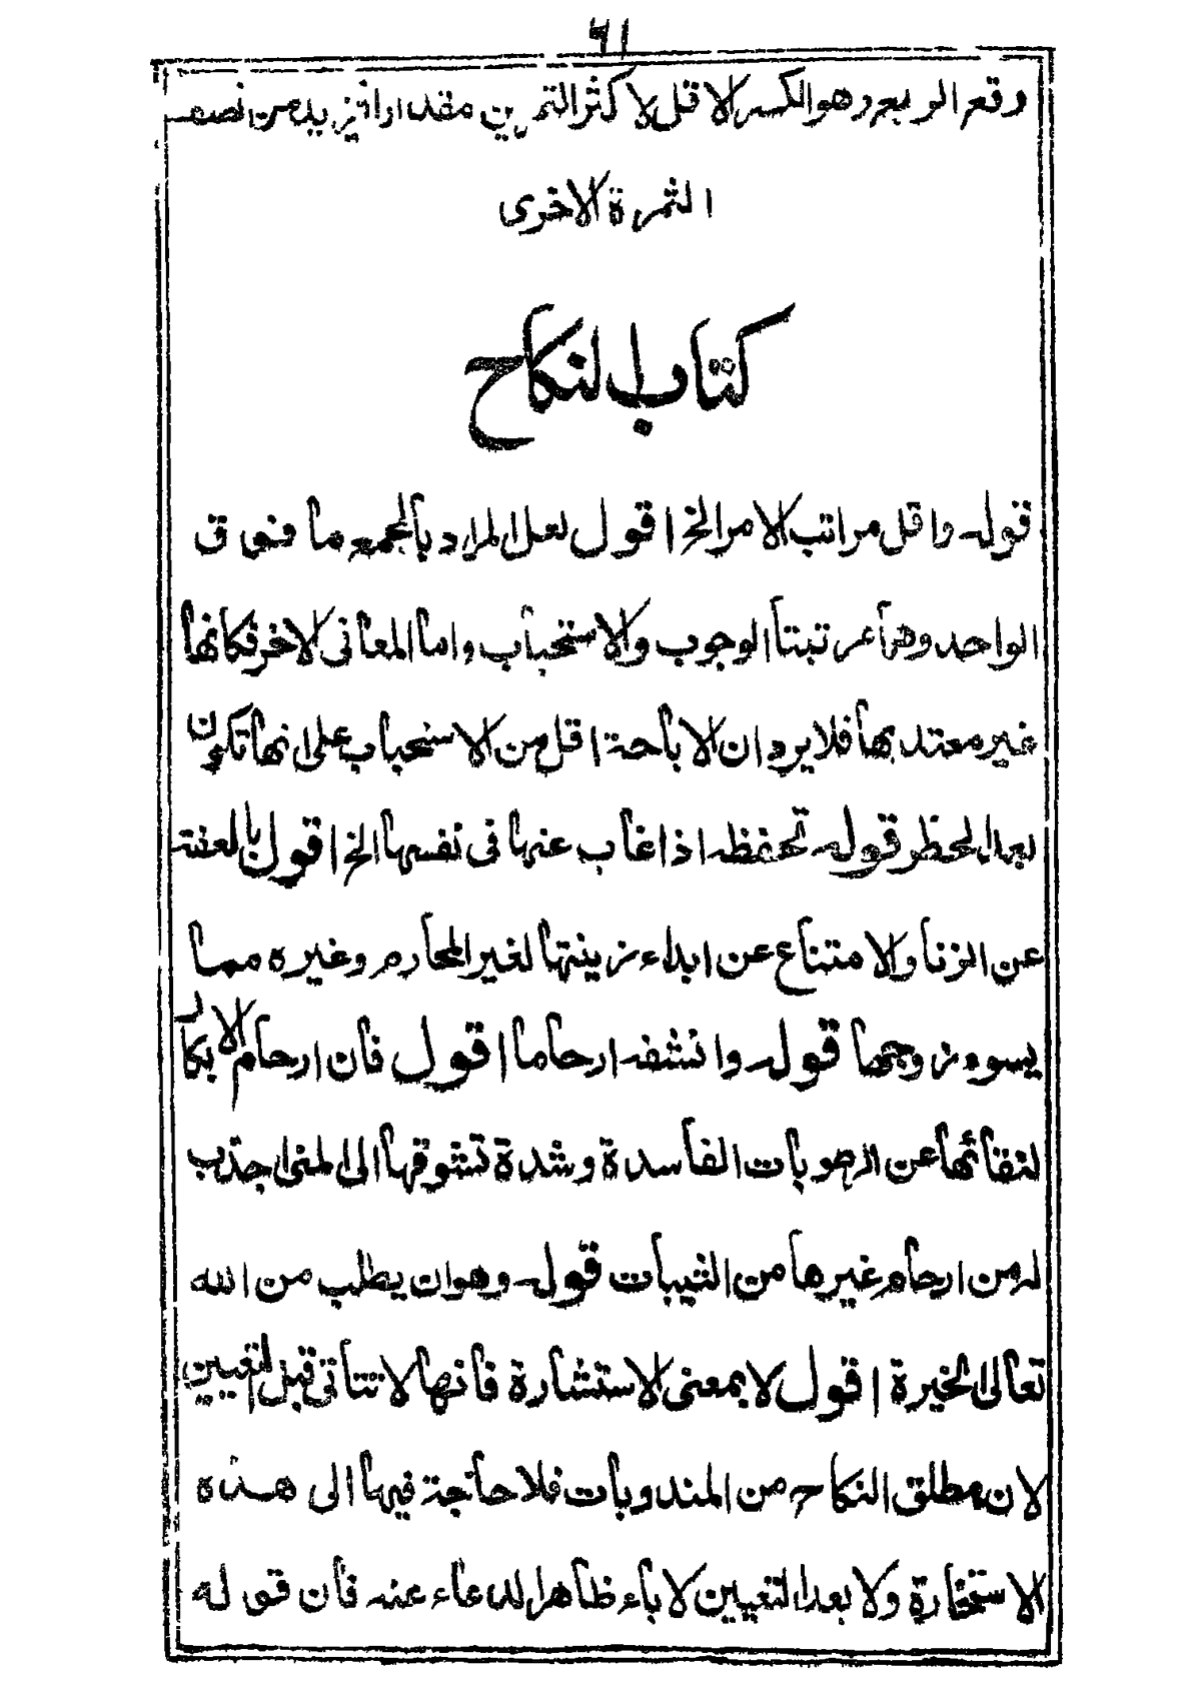 ٦١
وقع الربع وهو الكسر الاقل لاكثر الثمرتين مقدارا تزيد من نصف
الثمرة الاخرى
كتاب النكاح
قوله واقل مراتب الامر الخ اقول لعل المراد بالجمع ما فوق
الواحد وهما مرتبتا الوجوب والاستحباب واما المعانى الاخر فكانها
غير معتد بها فلا يرد ان الاباحة اقل من الاستحباب على انها تكون
بعد الحظر قوله تحفظه اذا غاب عنها فى نفسها الخ اقول بالعفة
عن الزنا والامتناع عن ابداء زينتها لغير المحارم وغيره مما
يسوء زوجها قوله وانشفه ارحاما اقول فان ارحام الابكار
لنقائها عن الرطوبات الفاسدة وشدة تشوقها الى المنى اجذب
له من ارحام غيرها من الثيبات قوله وهو ان يطلب من الله
تعالى الخيرة اقول لا بمعنى الاستشارة فانها لا تتاتى قبل التعيين
لان مطلق النكاح من المندوبات فلا حاجة فيها الى هذه
الاستخارة ولا بعد التعيين لاباء ظاهر الدعاء عنه فان قوله